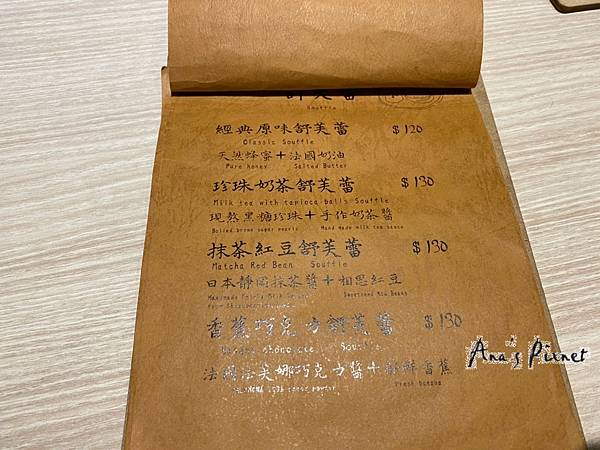 舒芙蕾
Souffle
經典原味舒芙蕾 $120
Classic Souffle
天然蜂蜜+法國奶油
Pure honey Salted Butter
珍珠奶茶舒芙蕾 $130
Milk tea with tapioca balls Souffle
現熬黑糖珍珠+手作奶茶醬
Boiled brown sugar pearls Hand made milk tea sauce
抹茶紅豆舒芙蕾 $130
Matcha Red Bean Souffle
日本靜岡抹茶醬+相思紅豆
Handmade Milk Sweetened Red Beans
from Shizuoka
香蕉巧克力舒芙蕾 $130
Banana chocolate Souffle
法國法芙娜巧克力醬+新鮮香蕉
100% cocoa powder Fresh banana
Ana's Pixnet